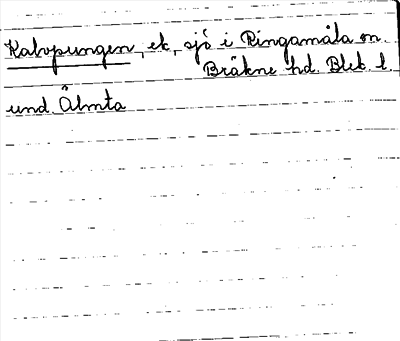 Kalvpungen, ek, sjö i Ringamåla sn.
Bräkne hd. Blek. l.
und. Älmta